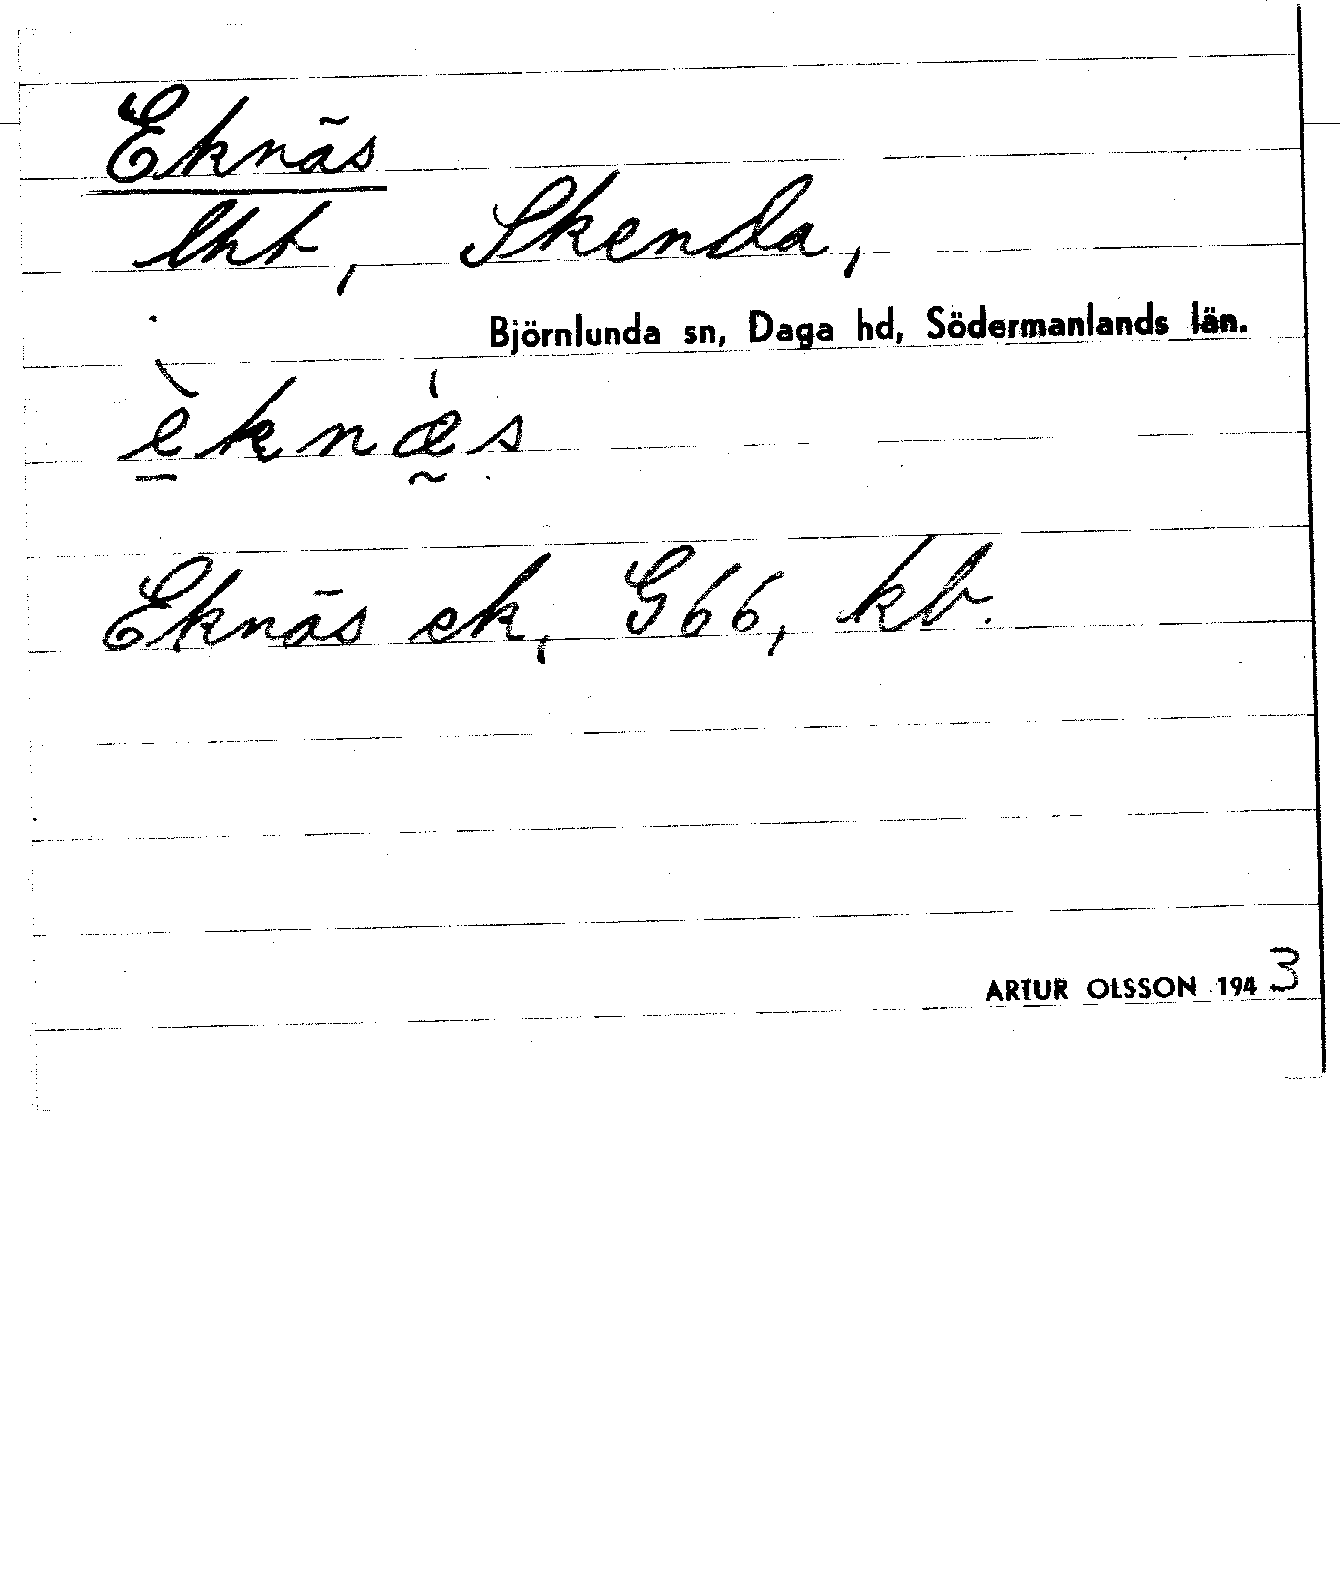 Eknäs
lht, Skenda,
Björnlunda sn, Daga hd, Södermanlands län.
è̱knǽ̰s
Eknäs ek, G66, kb.
ARTUR OLSSON 1943